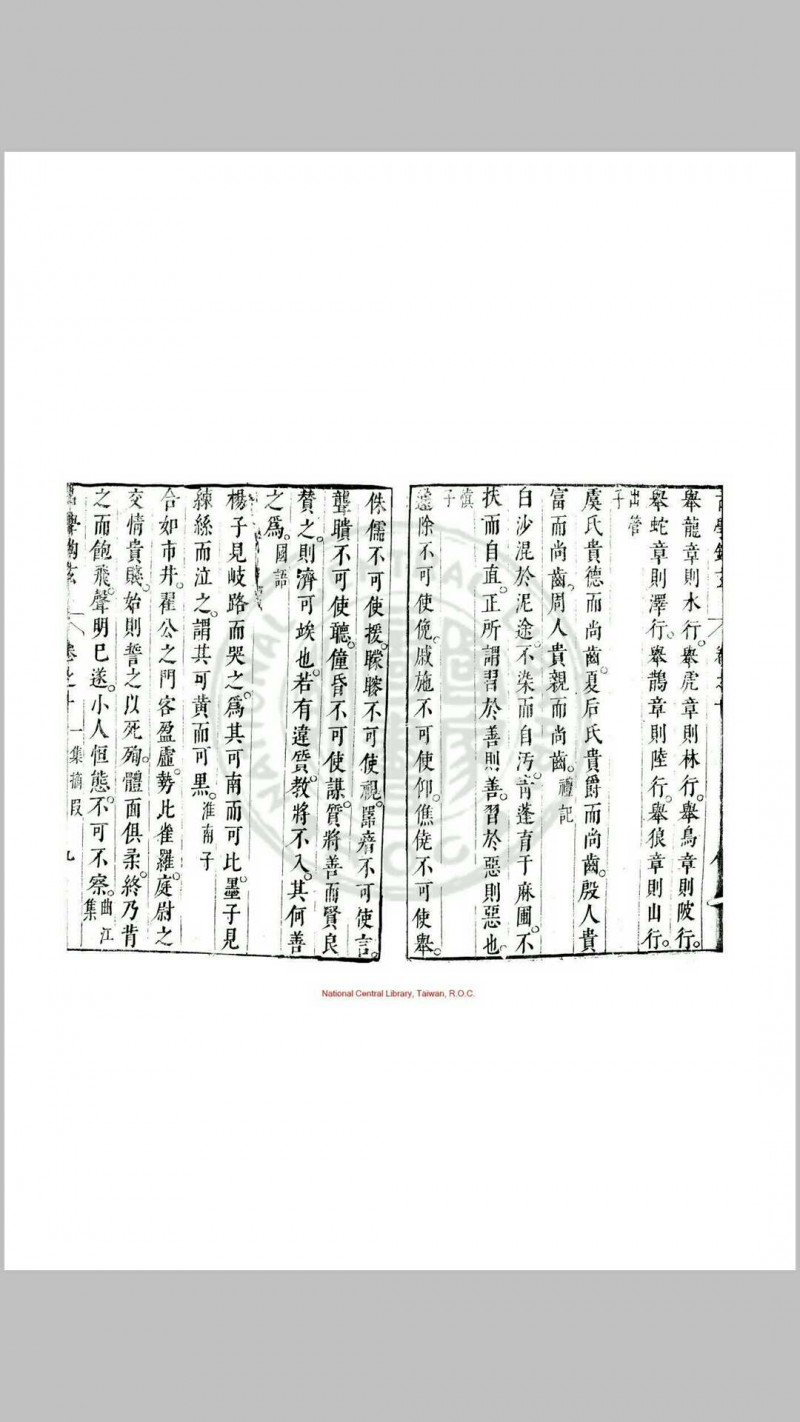 舉龍章則水行。舉虎章則林行。舉鳥章則陂行。
舉蛇章則澤行。舉鵲章則陸行。舉狼章則山行。
出管子
虞氏貴德而尚齒。夏后氏貴爵而尚齒。殷人貴
富而尚齒。周人貴親而尚齒。禮記
白沙混於泥途。不染而自汚。青蓬育于麻圃。不
扶而自直。正所謂習於善則善。習於惡則惡也。
慎子
籧除不可使俛。戚施不可使仰。僬僥不可使舉。
侏儒不可使援。矇瞍不可使視。嚚瘖不可使言。
聾聵不可使聽。僮昏不可使謀。質將善而賢良
賛之。則濟可竢也。若有違質。教將不入。其何善
之爲。國語
楊子見岐路而哭之。爲其可南而可北。墨子見
練絲而泣之。謂其可黄而可黒。淮南子
合如市井。翟公之門客盈虛。勢比雀羅。庭尉之
交情貴賤。始則誓之以死殉。體面俱柔。終乃背
之而飽飛。聲明已遂。小人恒態。不可不察。曲江集
卷之十一集摘段 九
National Central Library, Taiwan, R.O.C.